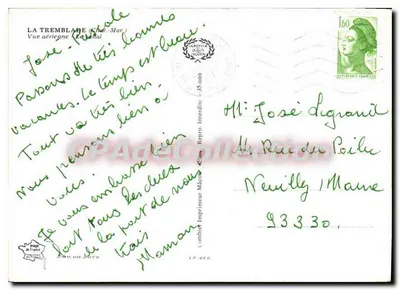 LA TREMBLADE (Char.-Mar.)
Vue aérienne
José, Nicole
Passons de très bonnes
vacances. Le temps est beau.
Tout va très bien.
Nous pensons bien à
vous.
Je vous embrasse bien
fort tous les deux
de la part de nous
trois
Maman
Combier Imprimeur Mâcon
Repro. Interdite
1,60
Mr José Legrand
Rue du Poilu
Neuilly / Marne
93330.
CPA-Collection